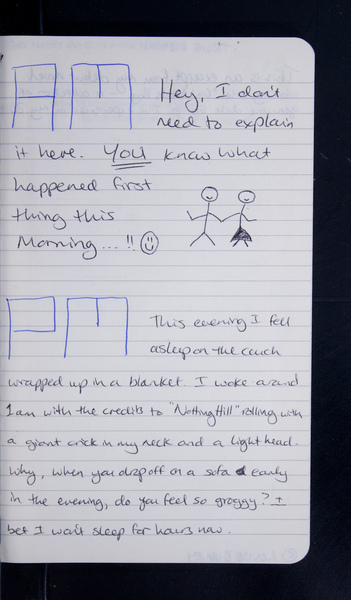 AM
Hey, I don't
need to explain
it here. YOU know what
happened first
thing this
Morning...!!
PM
This evening I fell
asleep on the couch
wrapped up in a blanket. I woke around
1am with the credits to "Notting Hill" rolling with
a giant crick in my neck and a light head.
Why, when you drop off on a sofa early
in the evening, do you feel so groggy? I
bet I won't sleep for hours now.